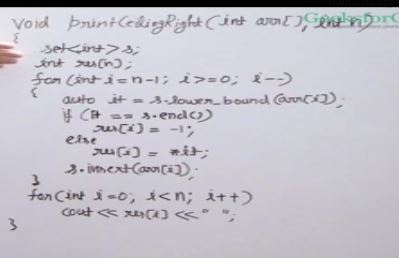 void printCeilingRight(int arr[], int n)
GeeksforG
{
set<int> s;
int res[n];
for(int i=n-1; i>=0; i--)
{
auto it = s.lower_bound(arr[i]);
if (it == s.end())
res[i] = -1;
else
res[i] = *it;
s.insert(arr[i]);
}
for(int i=0; i<n; i++)
cout << res[i] << " ";
}